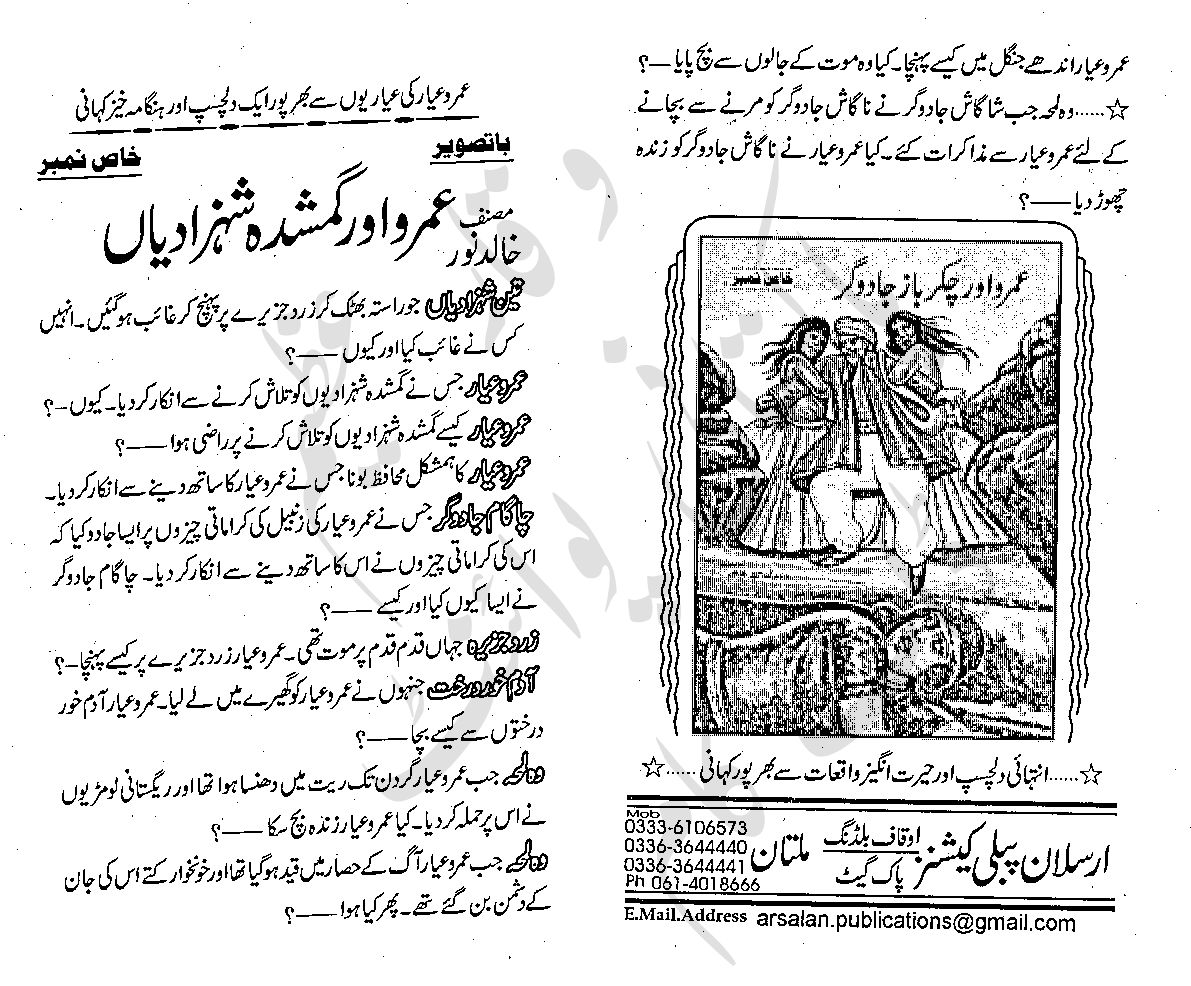 عمرو عیار اندھے جنگل میں کیسے پہنچا۔ کیا وہ موت کے جالوں سے بچ پایا ——؟
☆......وہ لمحہ جب شاگاش جادوگر نے ناگاش جادوگر کو مرنے سے بچانے
کے لئے عمرو عیار سے مذاکرات کئے۔ کیا عمرو عیار نے ناگاش جادوگر کو زندہ
چھوڑ دیا ——؟
عمرو اور چکر باز جادوگر
خاص نمبر
☆......انتہائی دلچسپ اور حیرت انگیز واقعات سے بھرپور کہانی......☆
ارسلان پبلی کیشنز اوقاف بلڈنگ ملتان
پاک گیٹ
Mob
0333-6106573
0336-3644440
0336-3644441
Ph 061-4018666
E.Mail.Address arsalan.publications@gmail.com
عمرو عیار کی عیاریوں سے بھرپور ایک دلچسپ اور ہنگامہ خیز کہانی
باتصویر
خاص نمبر
مصنف
خالد نور
عمرو اور گمشدہ شہزادیاں
تین شہزادیاں جو راستہ بھٹک کر زرد جزیرے پر پہنچ کر غائب ہوگئیں۔ انہیں
کس نے غائب کیا اور کیوں ——؟
عمرو عیار جس نے گمشدہ شہزادیوں کو تلاش کرنے سے انکار کر دیا۔ کیوں—؟
عمرو عیار کیسے گمشدہ شہزادیوں کو تلاش کرنے پر راضی ہوا ——؟
عمرو عیار کا ہمشکل محافظ بونا جس نے عمرو عیار کا ساتھ دینے سے انکار کر دیا۔
چاگام جادوگر جس نے عمرو عیار کی زنبیل کی کراماتی چیزوں پر ایسا جادو کیا کہ
اس کی کراماتی چیزوں نے اس کا ساتھ دینے سے انکار کر دیا۔ چاگام جادوگر
نے ایسا کیوں کیا اور کیسے ——؟
زرد جزیرہ جہاں قدم قدم پر موت تھی۔ عمرو عیار زرد جزیرے پر کیسے پہنچا—؟
آدم خور درخت جنہوں نے عمرو عیار کو گھیرے میں لے لیا۔ عمرو عیار آدم خور
درختوں سے کیسے بچا ——؟
وہ لمحہ جب عمرو عیار گردن تک ریت میں دھنسا ہوا تھا اور ریگستانی لومڑیوں
نے اس پر حملہ کر دیا۔ کیا عمرو عیار زندہ بچ سکا ——؟
وہ لمحہ جب عمرو عیار آگ کے حصار میں قید ہو گیا تھا اور خونخوار کتے اس کی جان
کے دشمن بن گئے تھے۔ پھر کیا ہوا ——؟